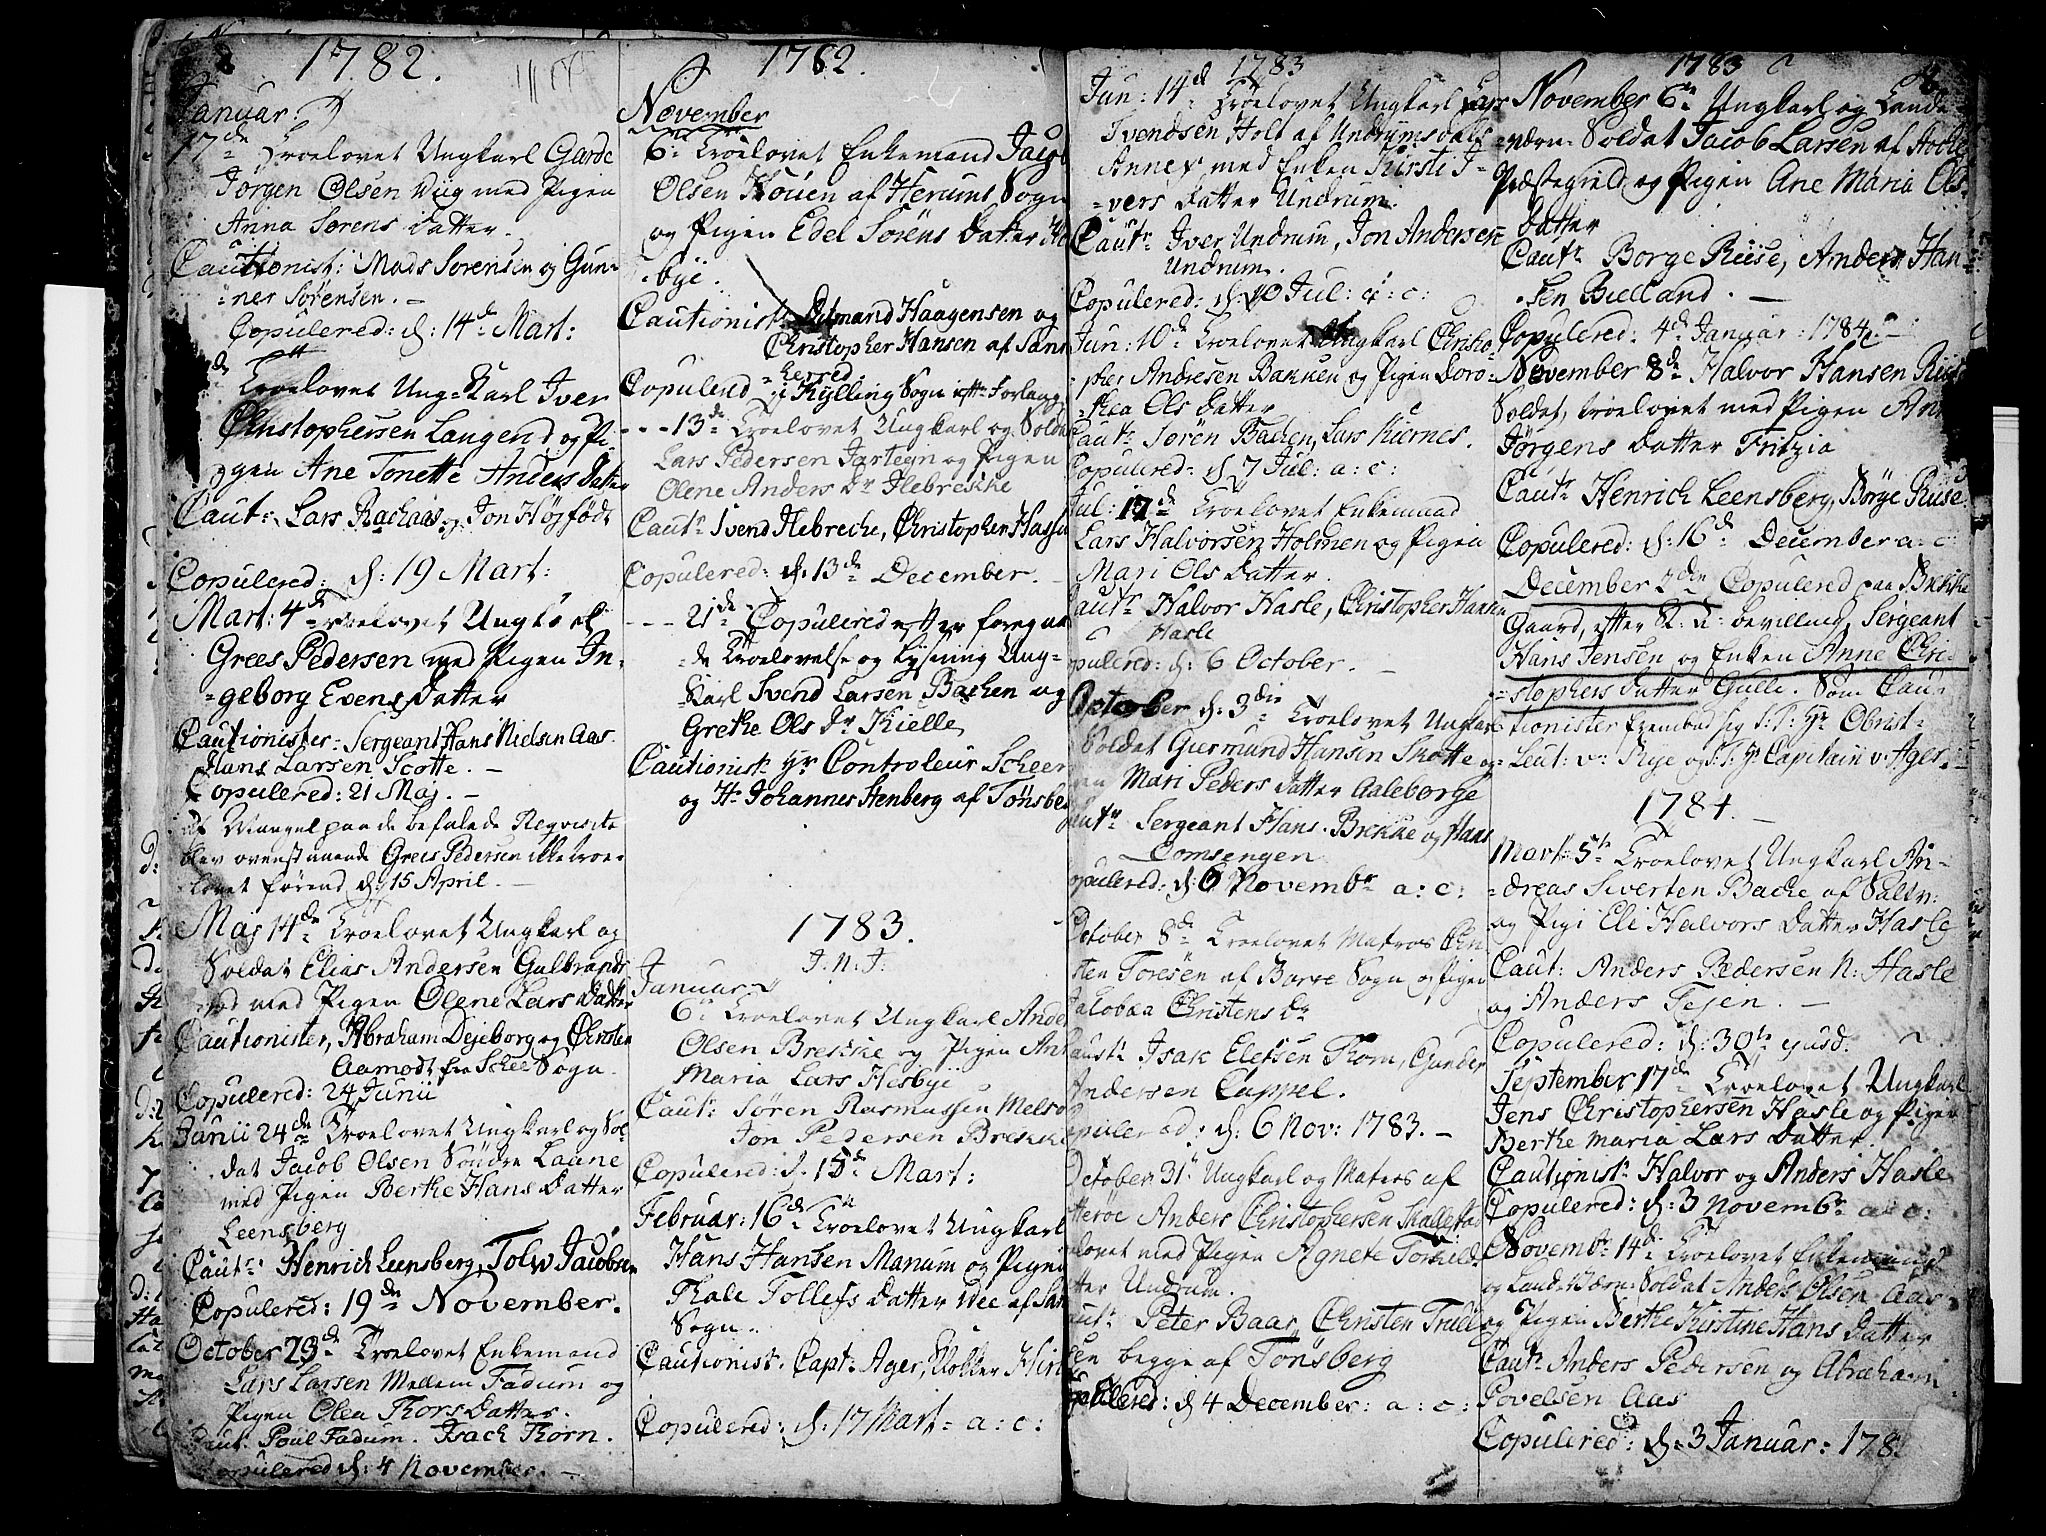 1782.
Januar:
17de Troelovet Ungkarl Garde
Jörgen Olsen Viig med Pigen
Anna Sörens datter.
Cautionist: Mads Sorensen og Gun-
=ner Sörensen. -
Copulered: d: 14de Mart:
Troelovet Ung-Karl Iver
Christophersen Langerud og Pi-
gen Ane Tonette Anders Datter
Caut: Lars Rachaas og Jon Höjfödt
Copulered: d: 19 Mart:
Mart: 4de Troelovet Ungkarl
Grees Pedersen med Pigen In-
=geborg Evens Datter
Cautionister = Sergeant Hans Nielsen Aas
Hans Larsen Scotte. -
Copulered: 21 Maj. -
af Mangel paa de befalede Reqvisita
blev ovenstaaende Grees Pedersen ikke troe-
lovet förend d: 15 April. -
Maj 14de Troelovet Ungkarl og
Soldat Elias Andersen Gulbrands
rød med Pigen Olene Lars Datter
Cautionister, Abraham Dejeborg og Christen
Aamodt fra Schee Sogn.
Copulered: 24 Junii
Junii 24de Troelovet Ungkarl og Sol-
dat Jacob Olsen Söndre Laane
med Pigen Berthe Hans Datter
Leensberg
Cautr Henrich Leensberg, Tolw Jacobsen
Copulered: 19de November.
October 29de Troelovet Enkemand
Lars Larsen Mellem Fadum og
Pigen Olea Thors Datter.
Caut. Poul Fadum. Isach Thorn.
Copulered d: 4 November. -
1782.
November
6te Troelovet Enkemand Jacob
Olsen Houen af Herums Sogn
og Pigen Edel Sörens Datter
=bye.
Cautionist: Ditmand Haagensen og
Christopher Hansen af Sand
=herred.
Copulered i Kylling Sogn eftr Forlang
- - - 13de Troelovet Ungkarl og Soldat
Lars Pedersen Jartegn og Pigen
Olene Anders Dr Ilebrekke
Cautr Svend Ilebreche, Christopher
Copulered: d: 13de December. -
- - - 21de Copulered efter foregaa
=de Troelovelse og Lysning Ung-
=Karl Svend Larsen Bachen og
Grethe Ols Dr Kielle
Cautionistr Hr Controleur Scheer
og Hr Johannes Stenberg af Tönsbe
1783.
J. N. J.
Januar
6te Troelovet Ungkarl Ander
Olsen Brekke og Pigen An
Maria Lars Hesbye
Caut: Sören Rasmussen Melso
Jon Pedersen Brekke
Copulered: d. 15de Mart:
Februar: 16de Troelovet Ungkarl
Hans Hansen Manum og Pigen
Thale Tollefs Datter Vee af San
Sogn.
Cautionist. Captn Ager, Klokker
Copulered: d: 17 Mart = a: c:
1783
Jun: 14de Troelovet Ungkarl Lars
Svendsen Holt af Undrumsdals
Annex med Enken Kirsti I-
=vers Datter Undrum.
Cautr Iver Undrum, Jon Andersen
Undrum.
Copulered: d: 10 Jul: a: c:
Jun: 10de Troelovet Ungkarl Christo-
=pher Andresen Bakken og Pigen Doro-
=thea Ols Datter
Cautr Sören Bachen, Lars Kiernes.
Copulered: d 7 Jul: a: c:
Jul: 17de Troelovet Enkemand
Lars Halvorsen Holmen og Pigen
Mari Ols Datter.
Cautr Halvor Hasle, Christopher Hansen
Hasle
Copulered: d: 6 October. -
October d: 3die Troelovet Ungkarl
Soldat Giermund Hansen Skotte og
Mari Peders Datter Aaleborge
Cautr Sergeant Hans Brekke og Hans
Comsengen
Copulered: d: 6 Novembr a: c:
October 8de Troelovet Matros Chri
sten Toresön af Borre Sogn og Pigen
Jacobaa Christens Dr
Cautr Isak Elefsen Thorn, Gunder
Andersen Cappel.
Copulered: d: 6 Nov: 1783. -
October 31te Ungkarl og Matros af
tteröe Anders Christophersen Skallestad
lovet med Pigen Agnete Torkild
tter Undrum.
Cautr Peter Baar, Christen Trud
sen begge af Tönsberg
Copulered: d 4 December: a: c:
1783
November 6te Ungkarl og Lande
=værn-Soldat Jacob Larsen af
Præstegield, og Pigen Ane Maria Ols
Datter
Cautr Borge Riise, Anders Han-
sen Bielland. -
Copulered: 4de Januar: 1784. -
November 8de Halvor Hansen Riis
Soldat, troelovet med Pigen An
Jörgens Datter Fritzia
Cautr Henrich Leensberg, Börge Riise.
Copulered: d: 16de December a: c:
December 7de Copulered paa Brekke
Gaard, efter K: A: bevilling, Sergeant
Hans Jensen og Enken Anne Chri-
=stophers datter Gulli. Som Cau-
=tionister frembød sig S: T: Hr Obrist-
=Leut: vn Rye og S: T: Hr Capitain v. Ager. -
1784. -
Mart: 5te Troelovet Ungkarl An-
=dreas Siverten Bache af
og Pigi Eli Halvors Datter Hasle
Caut: Anders Pedersen N: Hasle
og Anders Tejen. -
Copulered: d: 30te ejusd.
September 17de Troelovet Ungkarl
Jens Christophersen Hasle og Pigen
Berthe Maria Lars Datter.
Cautionistr Halvor og Anders Hasle
Copulered: d: 3 Novembr a: c:
Novembr 14de Troelovet Enkemand
og Land-Værn-Soldat Anders Olsen Aas
og Pigen Berthe Kirstine Hans Datter
Cautr Anders Pedersen og Abraham
Povelsen Aas
Copulered: d: 3 Januar: 178